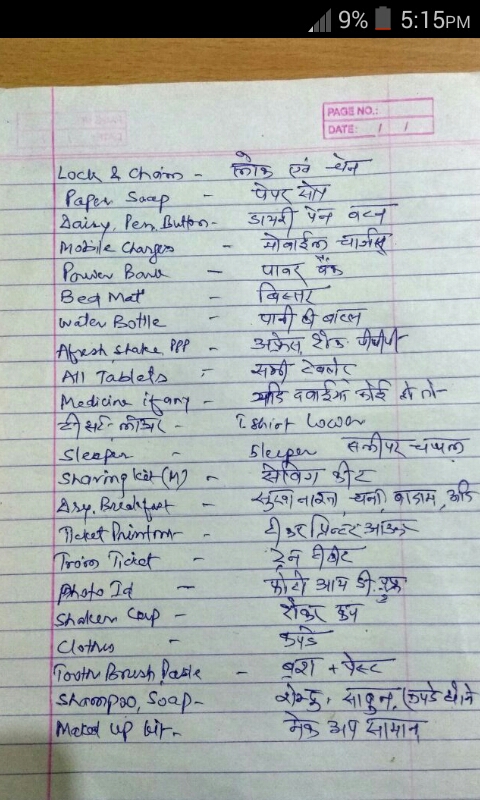 9% 5:15PM
PAGE NO.:
DATE: / /
Lock & Chain - लोक एवं चेन
Paper Soap - पेपर सोप
Dairy, Pen, Button - डायरी पेन बटन
Mobile Charger - मोबाईल चार्जर
Power Bank - पावर बैंक
Bed Mat - बिस्तर
Water Bottle - पानी की बाटल
Afresh Shake PPP - अफ्रेस, शेक पीपीपी
All Tablets - सभी टेबलेट
Medicine if any - यदि दवाईया कोई हो तो
टी शर्ट - लोअर - Tshirt Lower
Sleeper - Sleeper सलीपर चप्पल
Sharing Kit (M) - सेविंग कीट
Dry, Breakfast - सुखा नाश्ता, चना, बादाम, आदि
Ticket Printout - टीकट प्रिन्टर आऊट
Train Ticket - ट्रेन टीकीट
Photo Id - फोटो आय डी. प्रुफ
Shaker Cup - शेकर कप
Clothes - कपडे
Tooth Brush, Paste - ब्रश + पेस्ट
Shampoo, Soap - शेम्पू, साबुन, (कपडे धोने
Maked up kit - मेक अप सामान